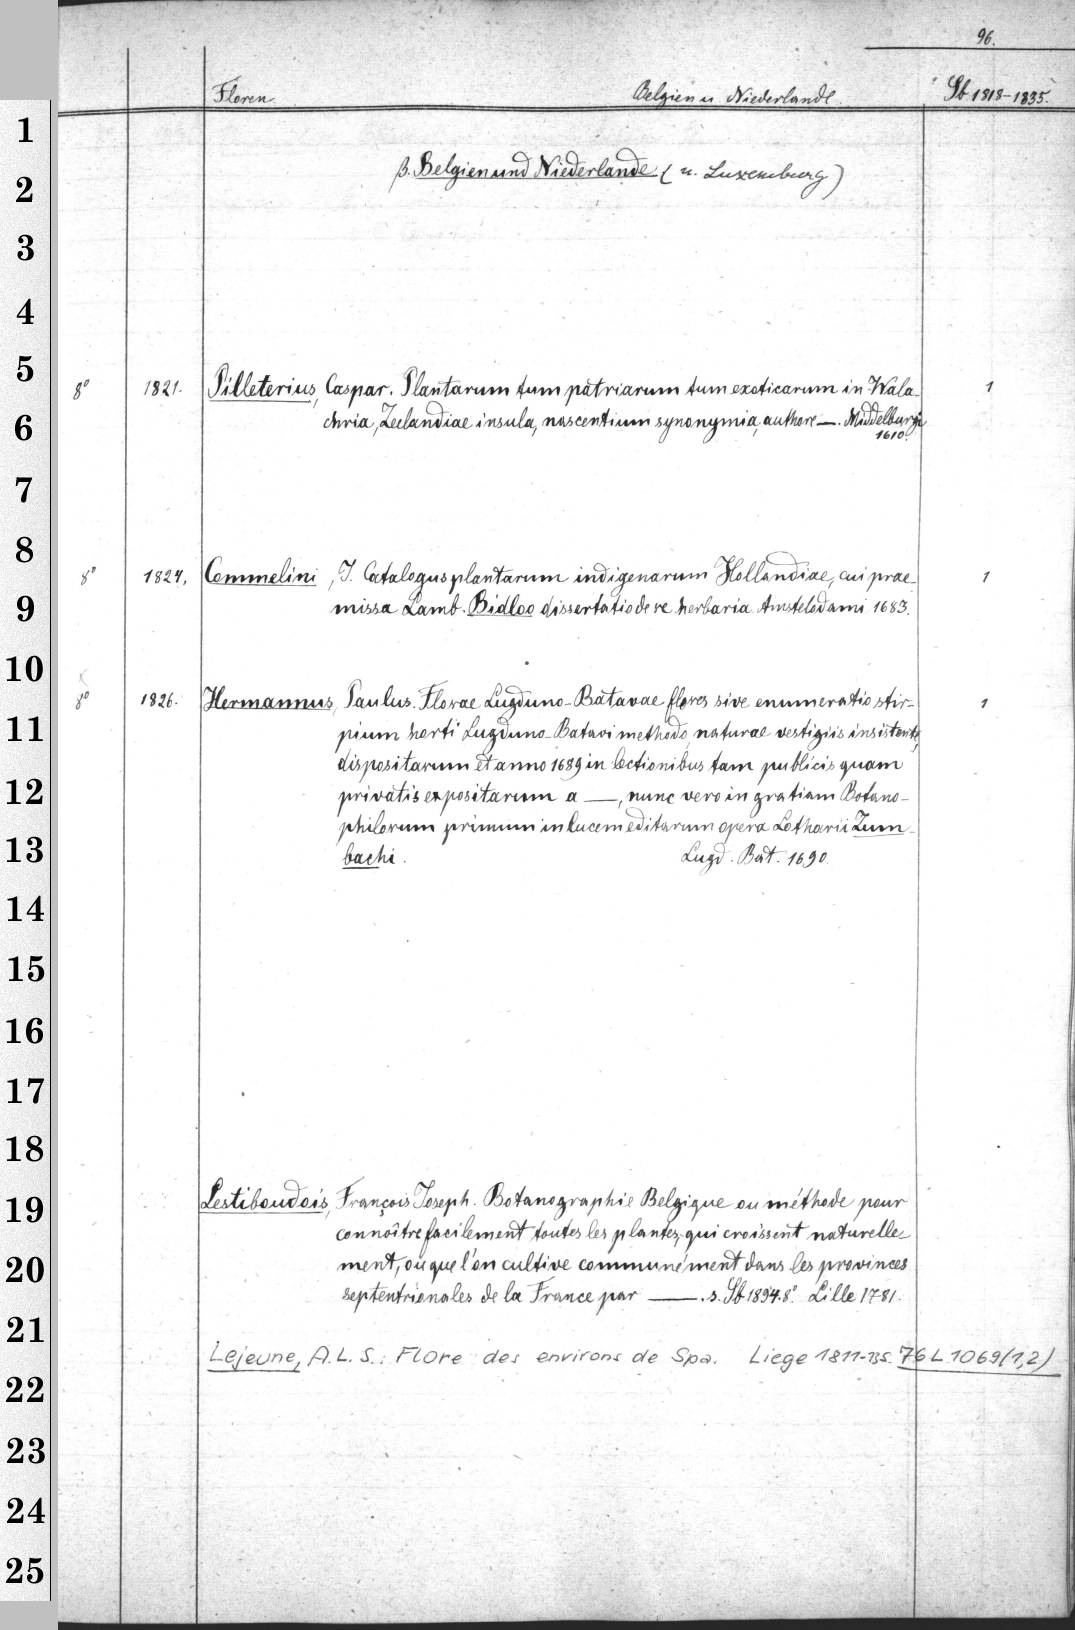 96.
Floren. Belgien u. Niederlande. Sb 1818-1835.
β. Belgien und Niederlande (u. Luxemburg)
8° 1821. Pilleterius, Caspar. Plantarum tum patriarum tum exoticarum in Wala- 1
chria, Zeelandiae insula, nascentium synonymia, authore —. Middelburgi
1610.
8° 1824. Commelini, J. Catalogus plantarum indigenarum Hollandiae, cui prae- 1
missa Lamb. Bidloo dissertatio de re herbaria. Amstelodami 1683.
8° 1826. Hermannus, Paulus. Florae Lugduno-Batavae flores sive enumeratio stir- 1
pium horti Lugduno-Batavi methodo naturae vestigiis insistente,
dispositarum et anno 1689 in lectionibus tam publicis quam
privatis expositarum a —, nunc vero in gratiam Botano-
philorum primum in lucem editarum opera Lotharii Zum-
bachi. Lugd. Bat. 1690.
Lestiboudois, François Joseph. Botanographie Belgique ou méthode pour
connoître facilement toutes les plantes, qui croissent naturelle-
ment, où que l'on cultive communément dans les provinces
septentrionales de la France par —. s. Sb 1894. 8° Lille 1781.
Lejeune, A. L. S.: Flore des environs de Spa. Liege 1811-135. 76 L 1069 (1,2)
1
2
3
4
5
6
7
8
9
10
11
12
13
14
15
16
17
18
19
20
21
22
23
24
25